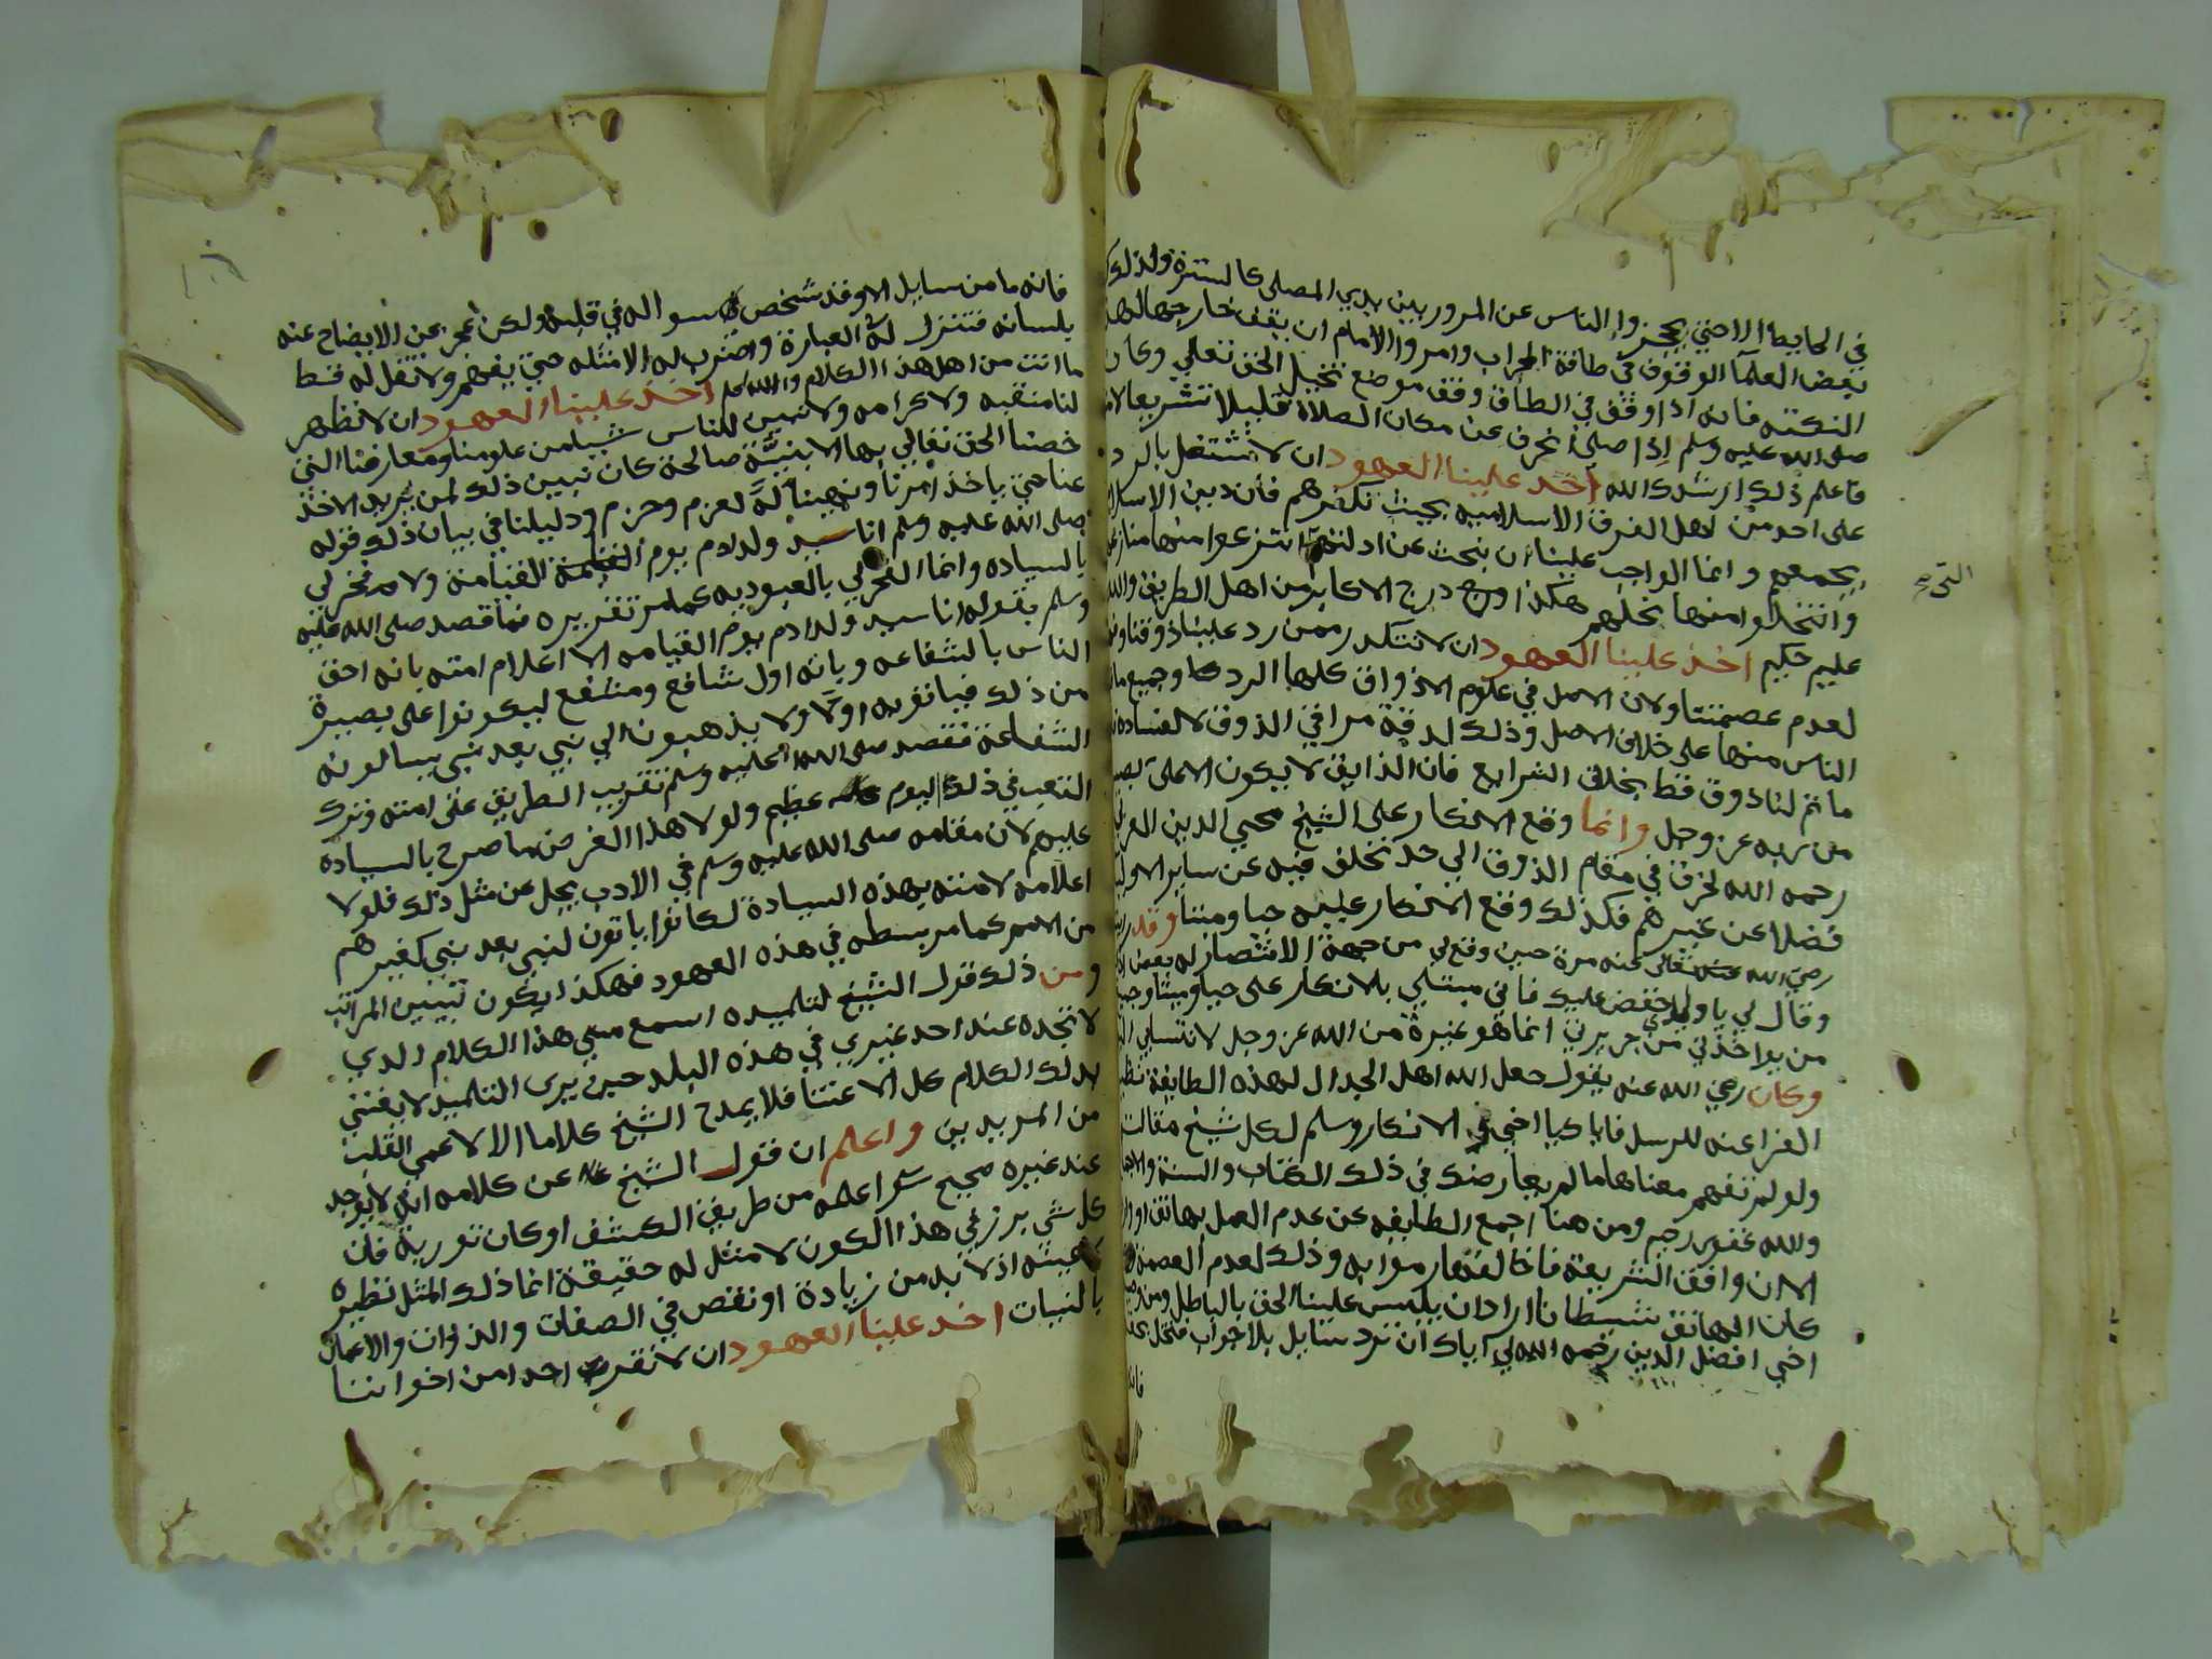 في الحايط الا حتي يحجزوا الناس عن المرور بين يدي المصلي كالسترة ولذلك
بعض العلمآ الوقوف في طاقة المحراب وامروا الامام ان يقف خارجها لهذه
النكتته فانه اذا وقف في الطاق وقف موضع تخيل الحق تعالي وكان
صلى الله عليه وسلم اذا صلى انحرف عن مكان الصلاة قليلا تشريعا لامته
فاعلم ذلك ارشدك الله اخذ علينا العهود ان لا نشتغل بالرد
على احد من اهل الفرق الاسلاميه بحيث نكفرهم فان دين الاسلام
يجمعهم وانما الواجب علينا ان نبحث عن ادلتهم انتزعوا منها منازعهم
وانتخلوا منها نحلهم هكذا درج الاكابر من اهل الطريق والله
عليم حكيم اخذ علينا العهود ان لا نتكدر ممن رد علينا ذوقنا
لعدم عصمتنا ولان الاصل في علوم الاذواق كلها الرد لها وجميع ما
الناس منها على خلاف الاصل وذلك لدقة مراقي الذوق لا لفساده
ما تم لنا ذوق قط يخالف الشرايع فان الذايق لا يكون الا على بصيرة
من ربه عز وجل وانما وقع الانكار على الشيخ محيي الدين العربي
رحمه الله لخرق في مقام الذوق الي حد تخلف فيه عن ساير الاوليا
فضلا عن غيرهم فكذلك وقع الانكار عليه حيا وميتا وقد
رضي الله تعالى عنه مرة حين وقع لي من جهة الانتصار له بعض
وقال لي يا ولدي خفض عليك فاني مبتلي بالانكار على حيا وميتا
من يواخذني من جريرتي انما هو غيرة من الله عز وجل
وكان رضي الله عنه يقول جعل الله اهل الجدال لهذه الطايفة نظير
الفراعنه للرسل فاياك يا اخي الانكار وسلم لكل شيخ مقالته
ولو لم تفهم معناها ما لم يعارضك في ذلك الكتاب والسنة والاجماع
والله غفور رحيم ومن هنا اجمع الطايفه عن عدم العمل بهاتف
الا ان وافق الشريعة فاخالفها رموا به وذلك لعدم العصمة
كان الهاتف شيطانا اراد ان يلبس علينا الحق بالباطل ومن وصية
اخي افضل الدين رحمه الله لي اياك ان ترد سايل بلا جواب
فانه
فانه ما من سايل الا وقد شخص سواله في قلبه ولكن عجز عن الايضاح عنه
بلسانه فتنزل له العبارة واضرب له الامثله حتي يفهم ولا تقل له قط
ما انت من اهل هذا الكلام والله اخذ علينا العهود ان لا نظهر
لنا منقبه ولا كرامه ولا نبين للناس شيا من علومنا ومعارفنا التي
خصنا الحق تعالي بها الا بنية صالحة كان نبين ذلك لمن يريد الاخذ
عنا حتي ياخذ امرنا ونهينا له لعزم وحزم ودليلنا في بيان ذلك قوله
صلى الله عليه وسلم انا سيد ولد ادم يوم القيامة ولا فخر لي
بالسياده وانما الفخر لي بالعبوديه كما مر تقريره فما قصد صلى الله عليه
وسلم بقوله انا سيد ولد ادم يوم القيامه الا اعلام امته بانه احق
الناس بالشفاعه وبانه اول شافع ومشفع ليكونوا على بصيرة
من ذلك فياتوه اولا ولا يذهبون الي نبي بعد نبي يسالونه
الشفاعة فقصد صلى الله عليه وسلم تقريب الطريق على امته وترك
التعب في ذلك اليوم عظيم ولولا هذا الغرض ما صرح بالسيادة
عليهم لان مقامه صلى الله عليه وسلم في الادب يجل عن مثل ذلك فلولا
اعلامه لامته بهذه السيادة لكانوا ياتون لنبي بعد نبي كغيرهم
من الامم كما مر بسطه في هذه العهود فهكذا يكون تبيين المراتب
ومن ذلك قول الشيخ لتلميذه اسمع مني هذا الكلام الذي
لا تجده عند احد غيري في هذه البلد حين يرى التلميذ لا يعتني
بذلك الكلام كل الاعتنا فلا يمدح الشيخ كلاما الا لاعمي القلب
من المريدين واعلم ان قول الشيخ عن كلامه انه لا يوجد
عند غيره صحيح سوا علمه من طريق الكشف او كان تورية فان
كل شي برز في هذا الكون لا مثل له حقيقة انما ذلك المثل نظيره
عينه اذ لا بد من زيادة او نقص في الصفات والذوات والاعمال
بالنيات اخذ علينا العهود ان لا نقر احدا من اخواننا